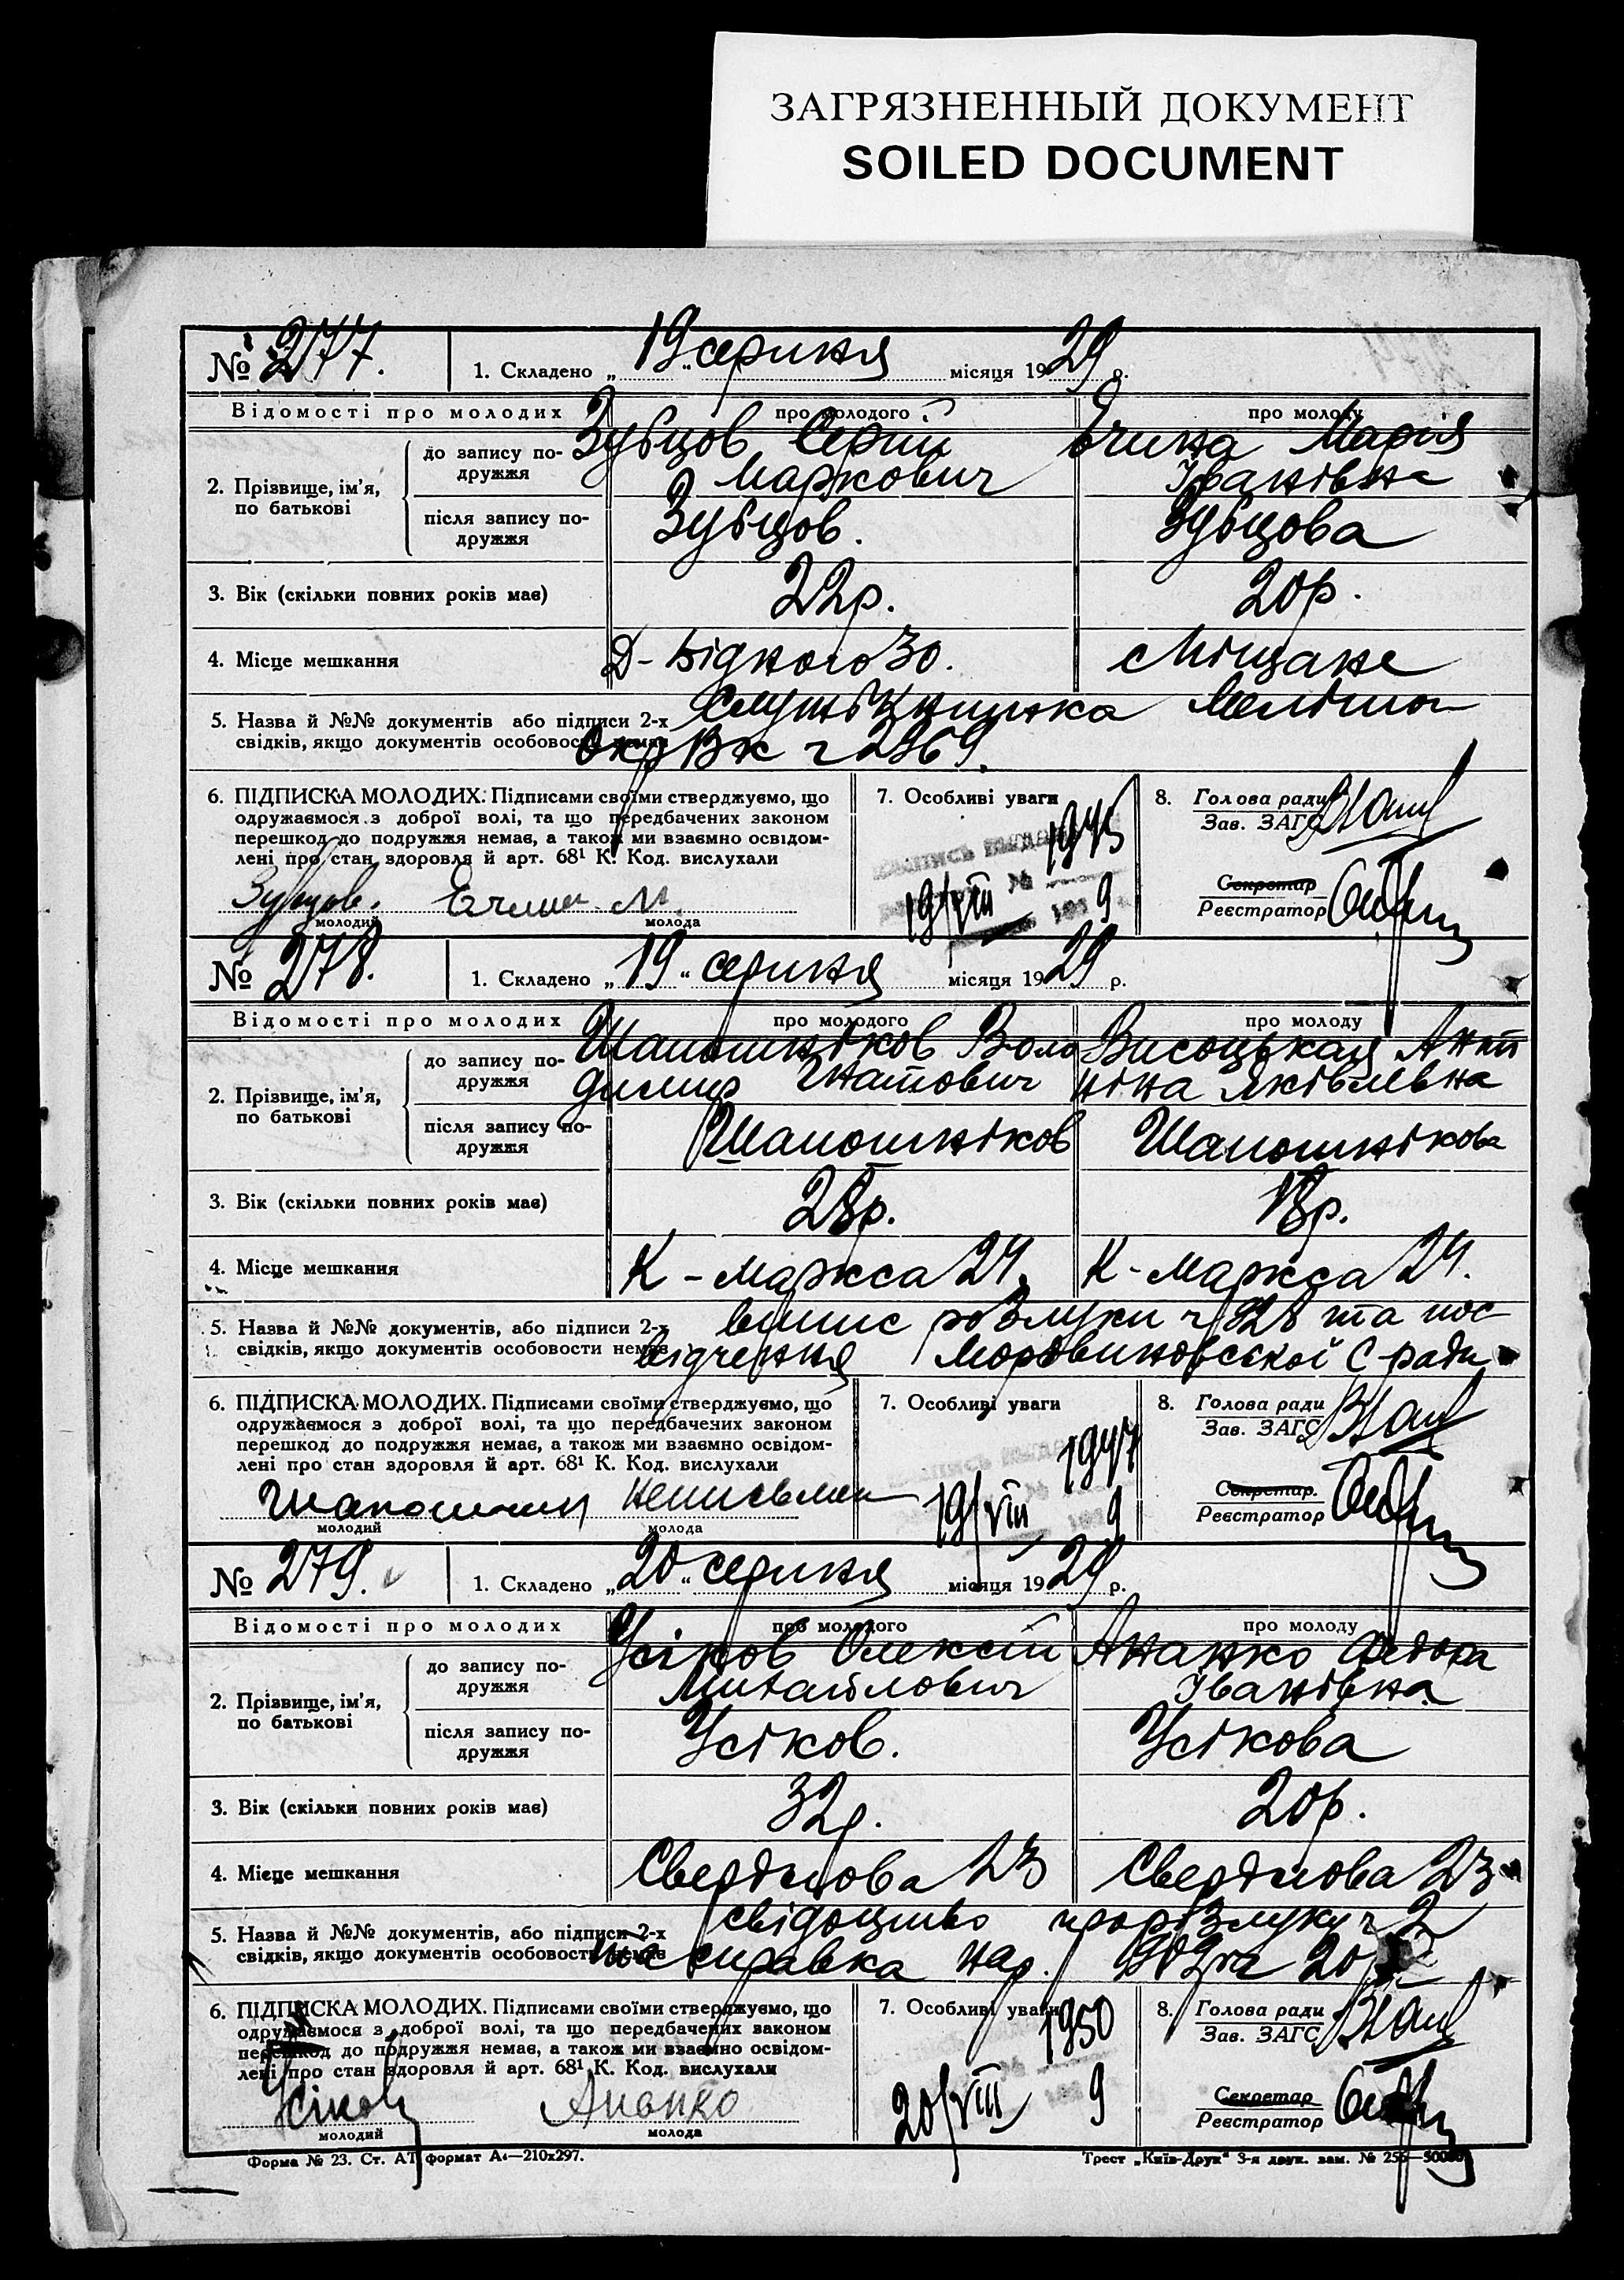 ЗАГРЯЗНЕННЫЙ ДОКУМЕНТ
SOILED DOCUMENT
№ 277. 1. Складено „19“ серпня місяця 1929 р.
Відомості про молодих про молодого про молоду
2. Прізвище, ім’я, по батькові
до запису подружжя
Зубцов Сергій Маркович
Марія Іванівна
після запису подружжя
Зубцов. Зубцова
3. Вік (скільки повних років має) 22р. 20р.
4. Місце мешкання Д-Бідного 30. Міщане
5. Назва й №№ документів або підписи 2-х
свідків, якщо документів особовости немає
ч 2969.
6. ПІДПИСКА МОЛОДИХ: Підписами своїми стверджуємо, що
одружаємося з доброї волі, та що передбачених законом
перешкод до подружжя немає, а також ми взаємно освідом-
лені про стан здоровля й арт. 68¹ К. Код. вислухали
Зубцов. М.
молодий молода
7. Особливі уваги
1945
19/VIII 9
8. Голова ради
Зав. ЗАГС
Секретар
Реєстратор
№ 278. 1. Складено „19“ серпня місяця 1929 р.
Відомості про молодих про молодого про молоду
2. Прізвище, ім’я, по батькові
до запису по-
дружжя
Шапошніков Воло
димир Гнатович
Висоцькая Анто
ніна Яківлевна
після запису по-
дружжя
Шапошніков Шапошнікова
3. Вік (скільки повних років має) 28р. 18р.
4. Місце мешкання К-Маркса 24. К-Маркса 24.
5. Назва й №№ документів, або підписи 2-х
свідків, якщо документів особовости немає
випис розлуки ч 928 та пос
відчення Мордвиновської С-ради
6. ПІДПИСКА МОЛОДИХ. Підписами своїми стверджуємо, що
одружаємося з доброї волі, та що передбачених законом
перешкод до подружжя немає, а також ми взаємно освідом-
лені про стан здоровля й арт. 68¹ К. Код. вислухали
молодий молода
7. Особливі уваги
1947
19/VIII 9
8. Голова ради
Зав. ЗАГС
Секретар.
Реєстратор
№ 279. 1. Складено „20“ серпня місяця 1929 р.
Відомості про молодих про молодого про молоду
2. Прізвище, ім’я,
по батькові
до запису по-
дружжя
Усіков Олексій
Михайлович
Ананко
Іванівна
після запису по-
дружжя
Усіков. Усікова
3. Вік (скільки повних років має) 32р. 20р.
4. Місце мешкання Свердлова 23 Свердлова 23
5. Назва й №№ документів, або підписи 2-х
свідків, якщо документів особовости немає
свідоцтво про розлуку ч 2
та справка нар.
6. ПІДПИСКА МОЛОДИХ. Підписами своїми стверджуємо, що
одружаємося з доброї волі, та що передбачених законом
перешкод до подружжя немає, а також ми взаємно освідом-
лені про стан здоровля й арт. 68¹ К. Код. вислухали
Усіков Ананко
молодий молода
7. Особливі уваги
1950
20/VIII 9
8. Голова ради
Зав. ЗАГС
Секретар
Реєстратор
Форма № 23. Ст. АТ формат А₄—210х297.
Трест „Київ-Друк“ 3-я друк. зам. №